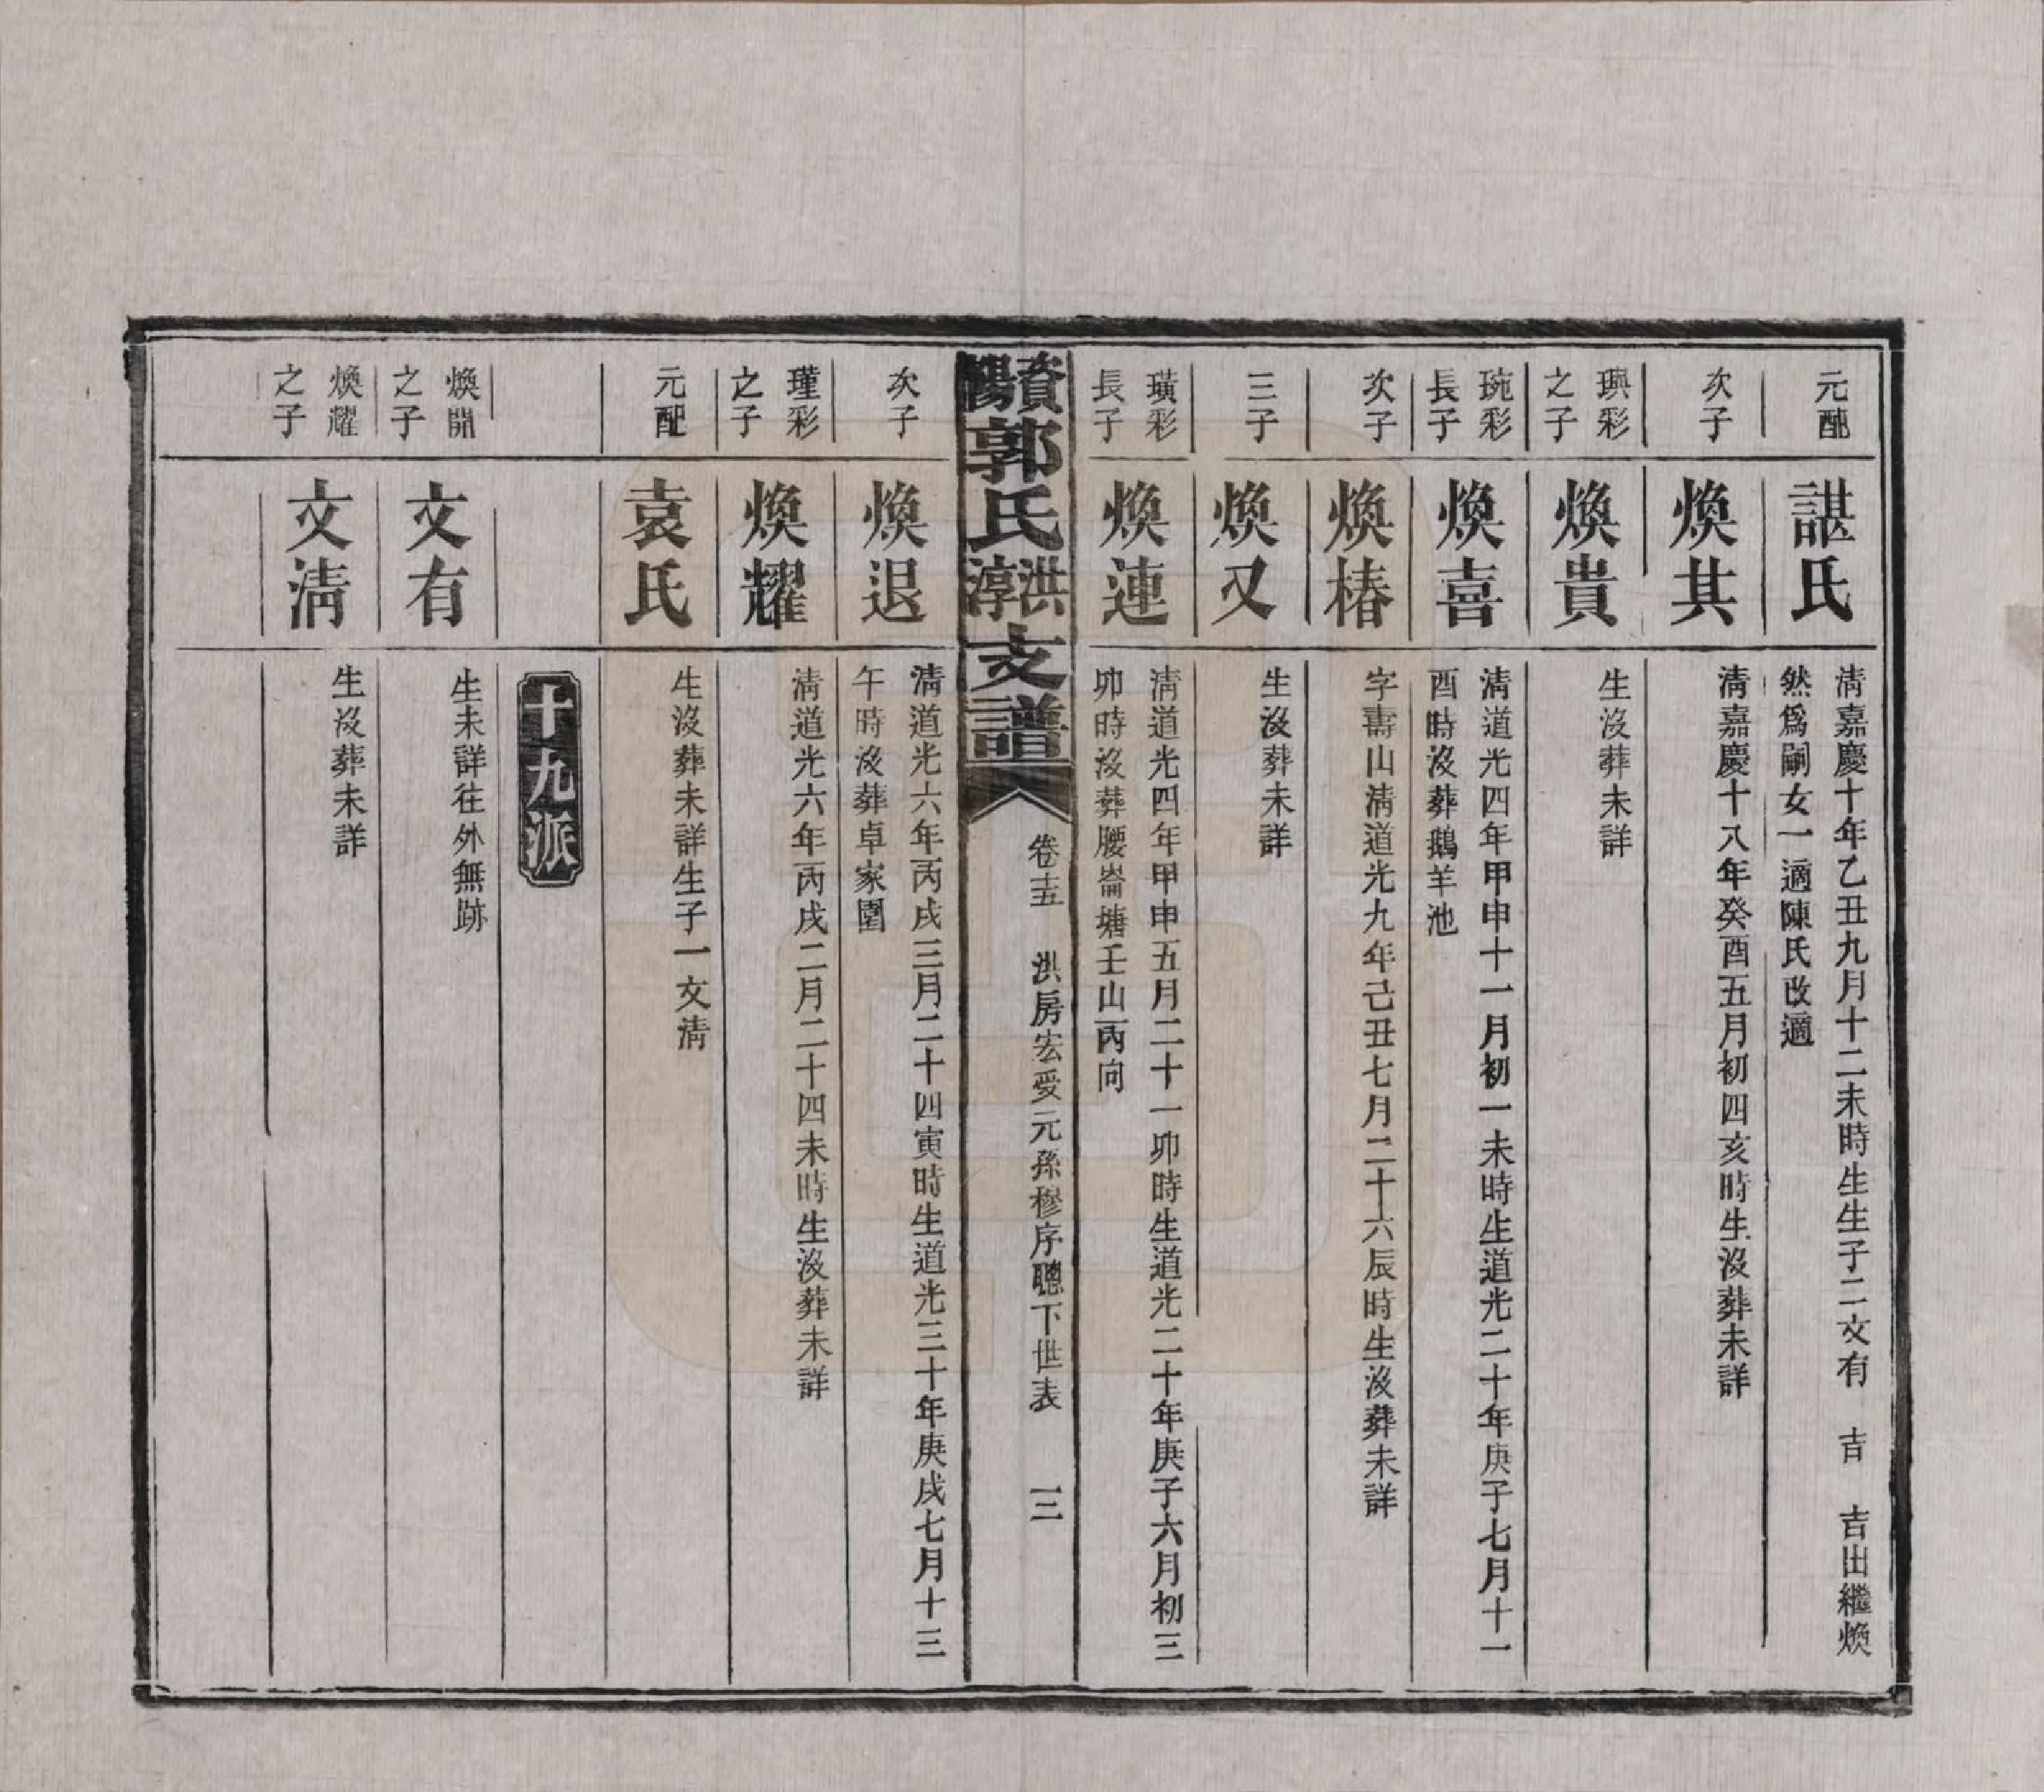 元配
諶氏
清嘉慶十年乙丑九月十二未時生生子二文有 吉 吉出繼煥
然爲嗣女一適陳氏改適
次子
煥其
清嘉慶十八年癸酉五月初四亥時生沒葬未詳
璵彩
之子
煥貴
生沒葬未詳
琬彩
長子
煥喜
清道光四年甲申十一月初一未時生道光二十年庚子七月十一
酉時沒葬鵝羊池
次子
煥椿
字壽山清道光九年己丑七月二十六辰時生沒葬未詳
三子
煥又
生沒葬未詳
璜彩
長子
煥連
清道光四年甲申五月二十一卯時生道光二十年庚子六月初三
卯時沒葬腰崙塘壬山丙向
資陽郭氏洪淳支譜
卷十五 洪房宏受元孫穆序聰下世表 三
次子
煥退
清道光六年丙戌三月二十四寅時生道光三十年庚戌七月十三
午時沒葬卓家圍
瑾彩
之子
煥耀
清道光六年丙戌二月二十四未時生沒葬未詳
元配
袁氏
生沒葬未詳生子一文清
十九派
煥開
之子
文有
生未詳往外無跡
煥耀
之子
文清
生沒葬未詳